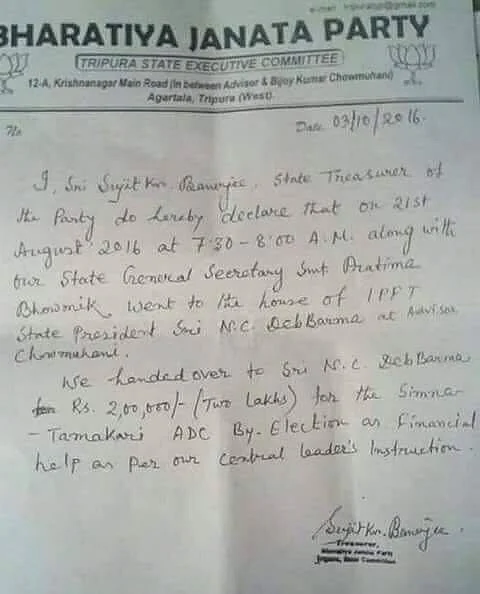 e-mail tripurabjp@gmail.com
BHARATIYA JANATA PARTY
TRIPURA STATE EXECUTIVE COMMITTEE
12-A, Krishnanagar Main Road (In between Advisor & Bijoy Kumar Chowmuhani)
Agartala, Tripura (West).
No
Date 03/10/2016.
I, Sri Sujit Kr. Banerjee, State Treasurer of
the Party do hereby declare that on 21st
August 2016 at 7:30-8:00 A.M. along with
our State General Secretary Smt. Pratima
Bhowmik went to the house of IPFT
State President Sri N.C. DebBarma at Advisor
Chowmuhani.
We handed over to Sri N.C. DebBarma
Rs. 2,00,000/- (Two Lakhs) for the Simna
- Tamakari ADC By-Election as Financial
help as per our central leader's Instruction.
Sujit Kr. Banerjee.
Treasurer,
Bharatiya Janata Party
Tripura, State Committee